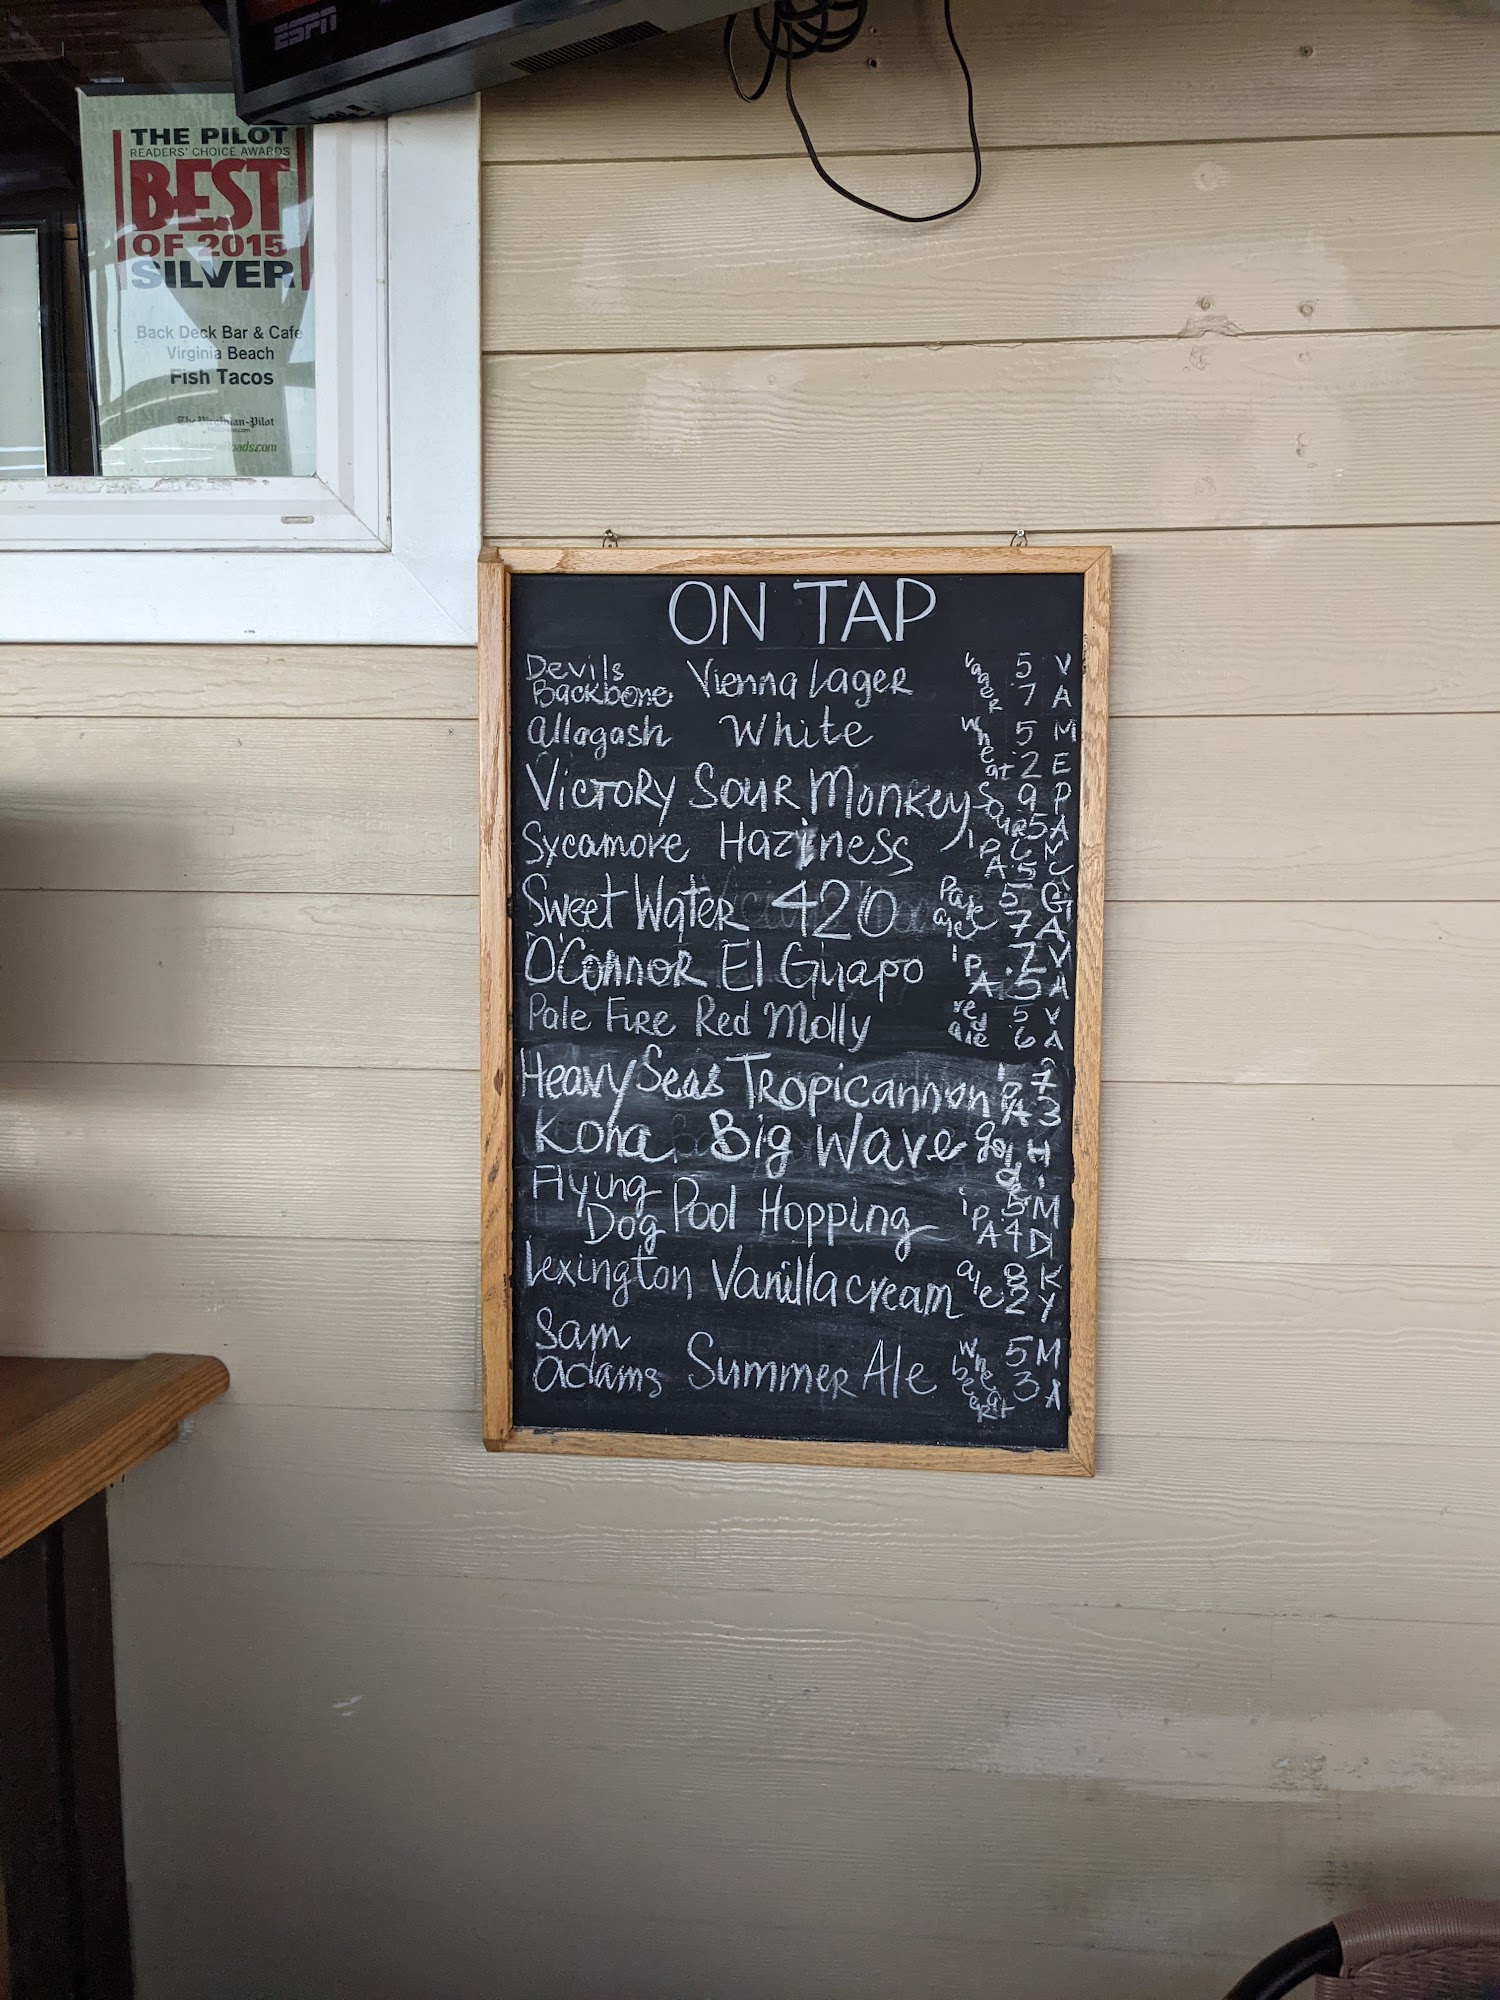 ESPN
THE PILOT
READERS' CHOICE AWARDS
BEST
OF 2015
SILVER
Back Deck Bar & Cafe
Virginia Beach
Fish Tacos
The Virginian-Pilot
ON TAP
Devils Backbone Vienna Lager Lager 5.7 VA
Allagash White Wheat 5.2 ME
Victory Sour Monkey Sour 9.5 PA
Sycamore Haziness IPA 6.5 NC
Sweet Water 420 Pale ale 5.7 GA
O'Connor El Guapo IPA 7.5 VA
Pale Fire Red Molly red ale 5.6 VA
Heavy Seas Tropicannon IPA 7.3
Kona Big Wave gold HI
Flying Dog Pool Hopping IPA 5.4 MD
Lexington Vanilla cream ale 8.2 KY
Sam Adams Summer Ale Wheat beer 5.3 MA